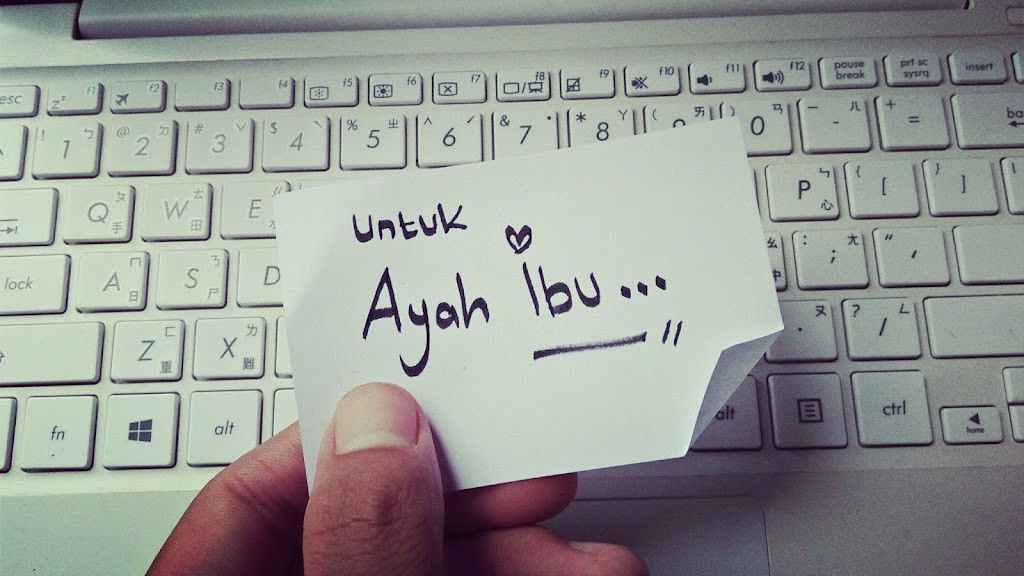 esc f1 f2 f3 f4 f5 f6 f7 f8 f9 f10 f11 f12 pause break prt sc sysrq insert
! 1 ㄅ @ 2 ㄉ # 3 ˇ $ 4 ˋ % 5 ㄓ ^ 6 ˊ & 7 ˙ * 8 ㄚ ( 9 ㄞ ) 0 ㄢ - ㄦ + =
Q ㄆ 手 W ㄊ 田 E P ㄣ 心 { [ } ]
lock A ㄇ 日 S ㄋ 尸 D : ; ㄤ " '
Z ㄈ 重 X ㄌ 難 . ㄡ ? / ㄥ
fn alt alt ctrl home
untuk
Ayah Ibu... "